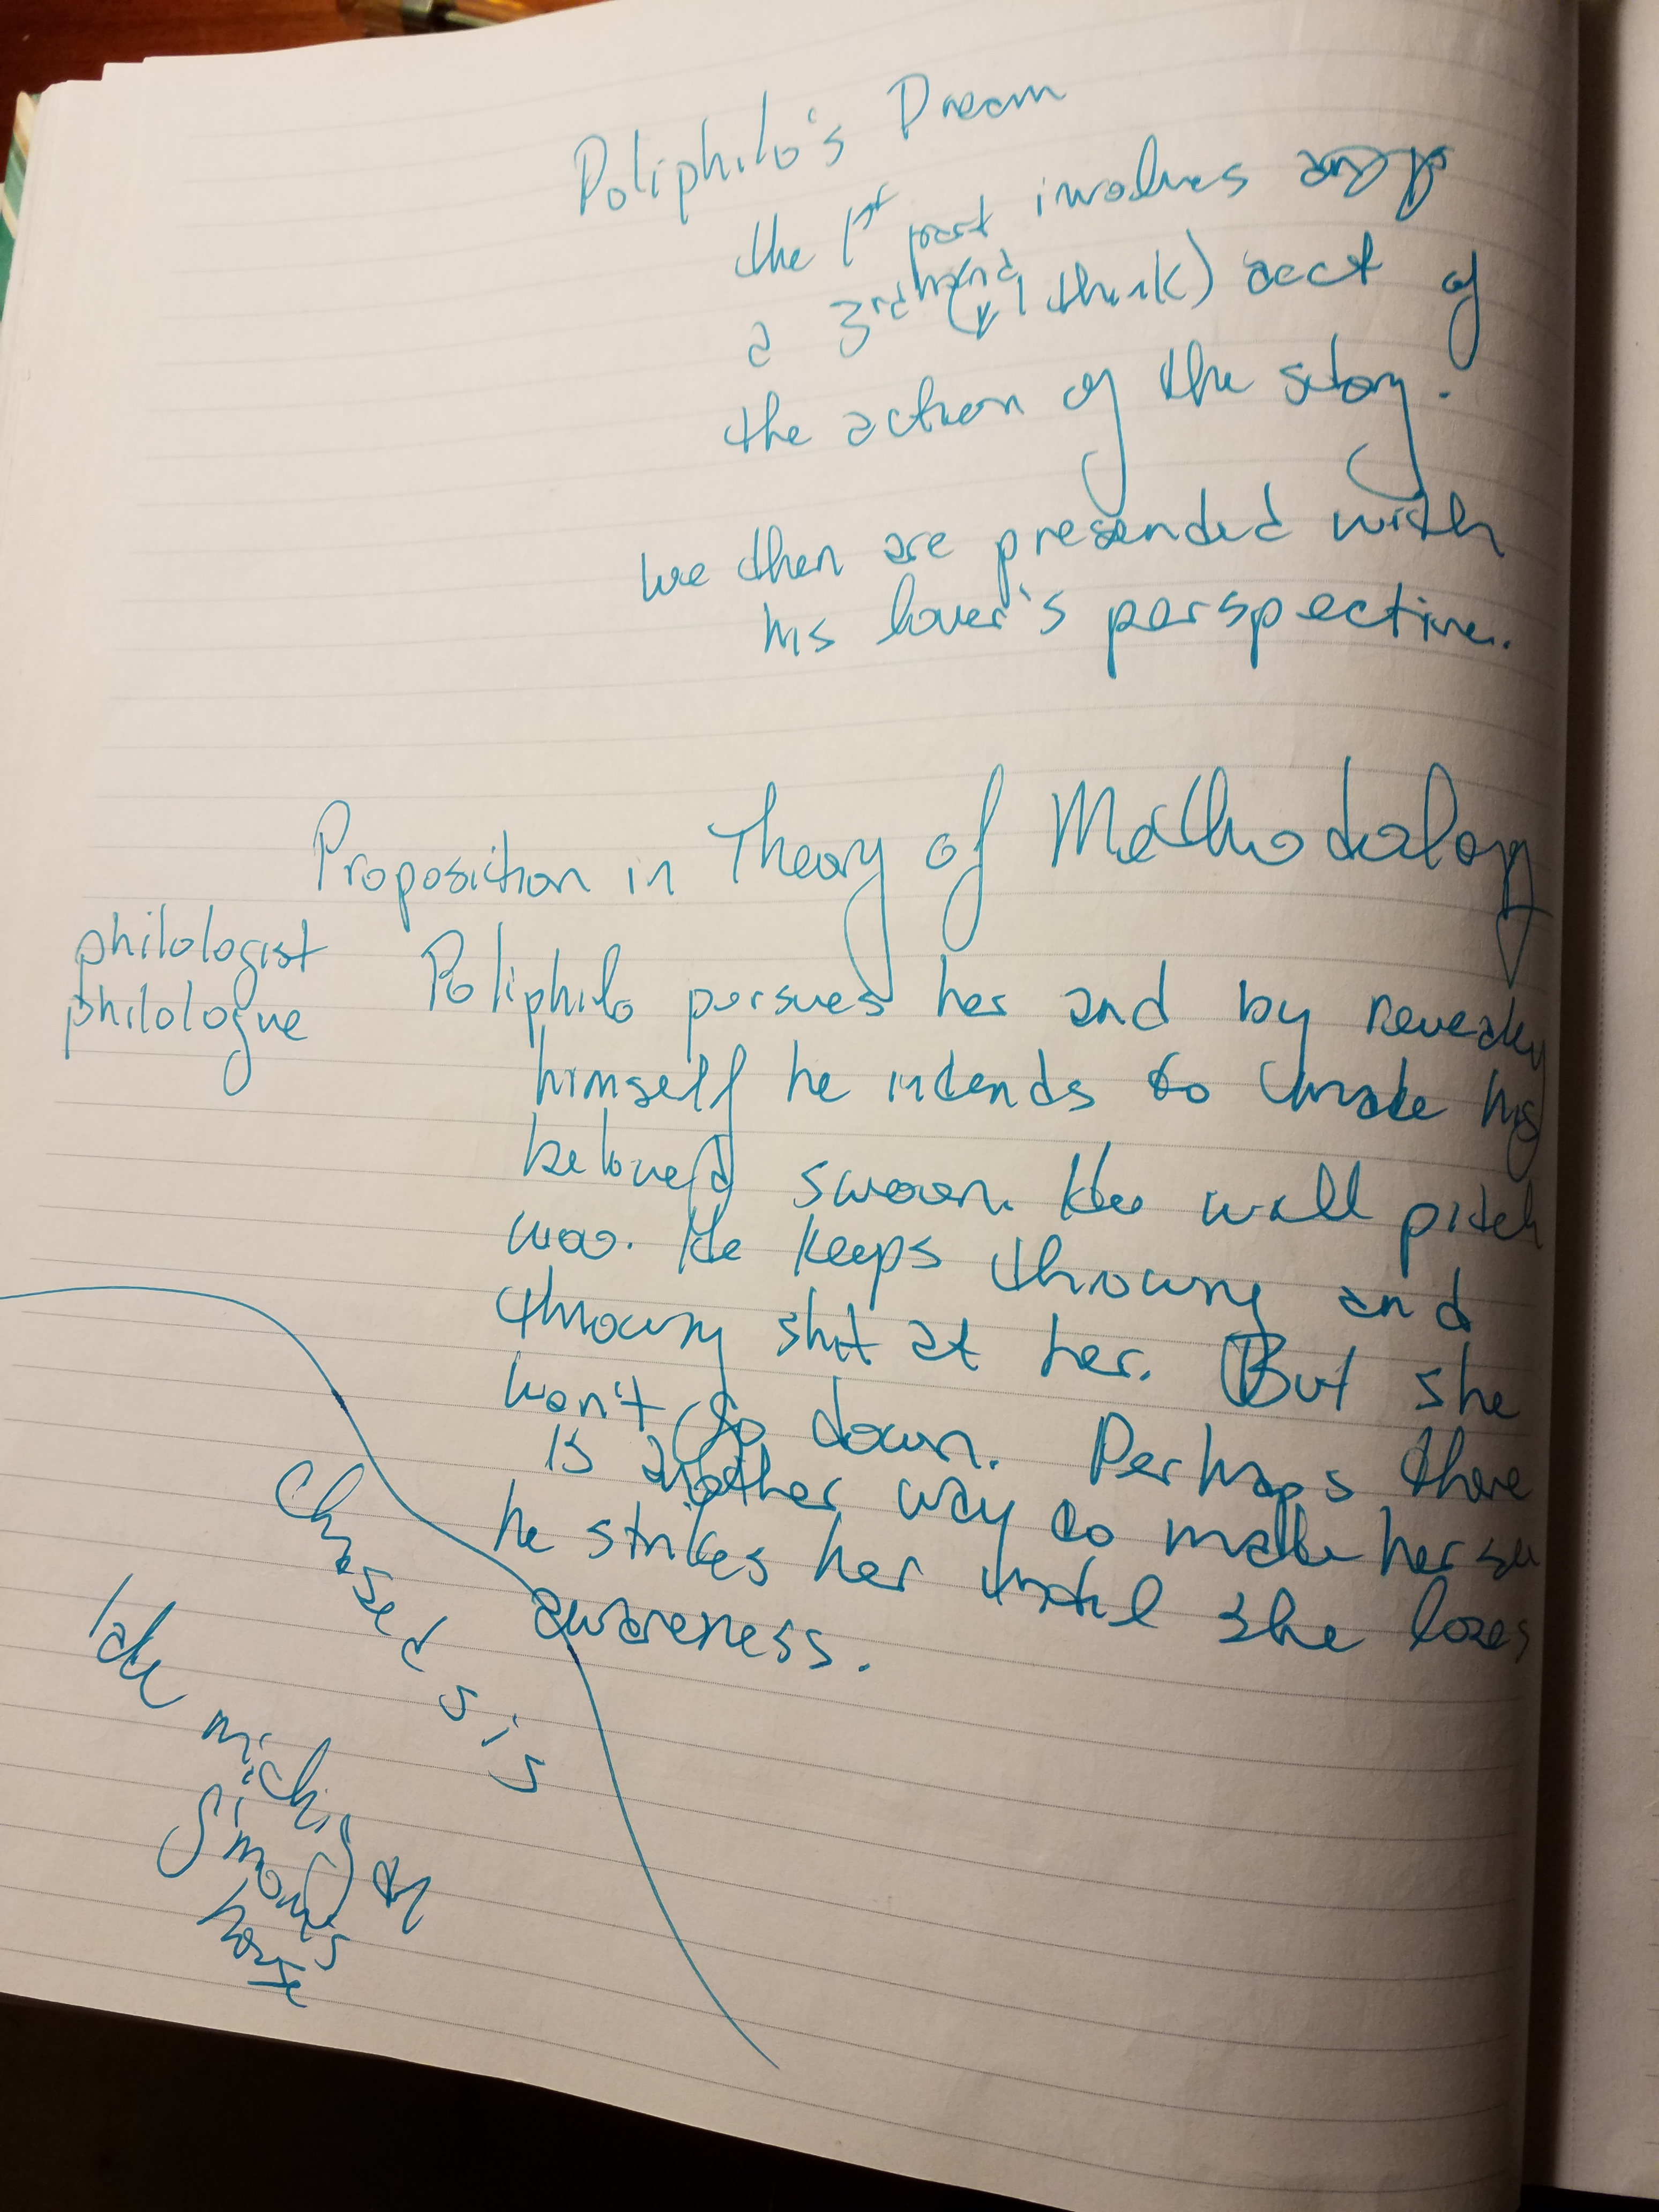 Poliphilo's Dream
the 1st part involves
a 3rd hand (I think) acct of
the action of the story.
we then are presended with
his lover's perspective.
Proposition in Theory of Methodology
philologist
philologue
Poliphilo persues her and by revealing
himself he intends to make his
beloved swoon. He will pitch
woo. He keeps throwing and
throwing shit at her. But she
won't go down. Perhaps there
is another way to make her
he strikes her until she loses
awareness.
Chased sis
lake michigan
Simon's
house